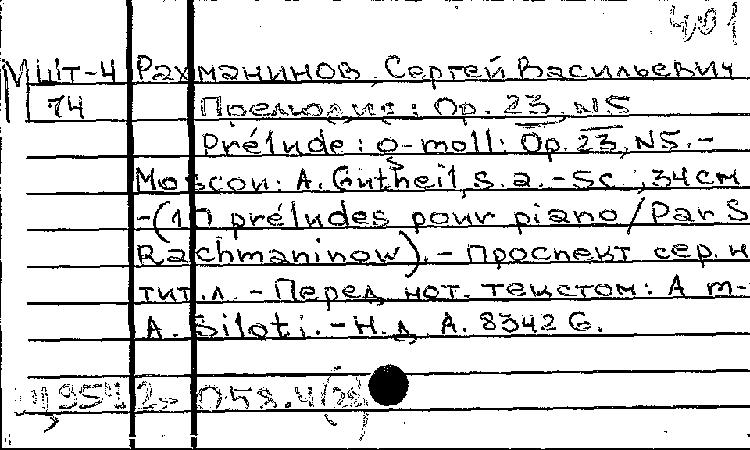 401
М Шт-4 Рахманинов, Сергей Васильевич
74 Прелюдия: Op. 23, N5
Prélude: g-moll: Op. 23, N5. –
Moscou: A. Gutheil, s. a. – 5c.; 34см
– (10 préludes pour piano / Par S
Rachmaninow). – Проспект сер. н
тит. л. – Перед нот. текстом: A m-
A. Siloti. – Н. д. A. 8342 G.